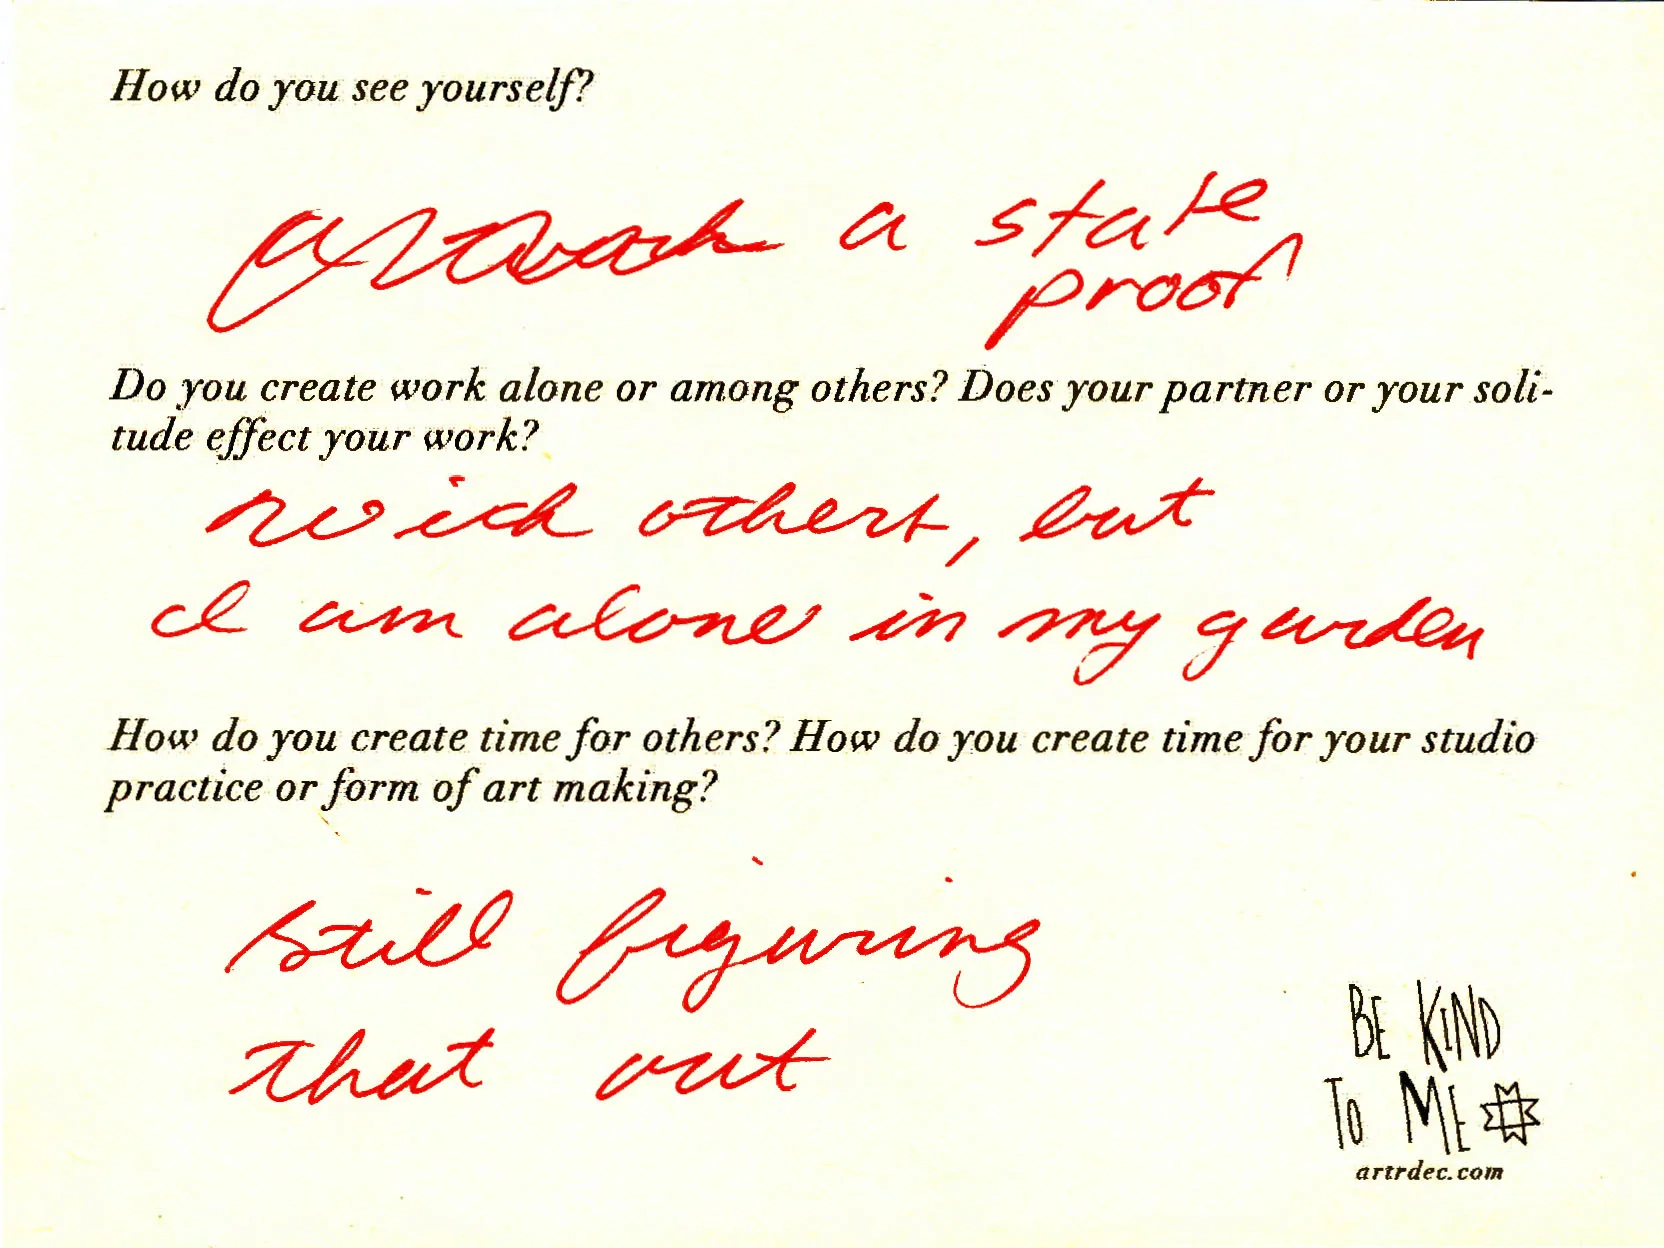 How do you see yourself?
a state
proof
Do you create work alone or among others? Does your partner or your soli-
tude effect your work?
with others, but
I am alone in my garden
How do you create time for others? How do you create time for your studio
practice or form of art making?
still figuring
that out
BE KIND
TO ME
artrdec.com